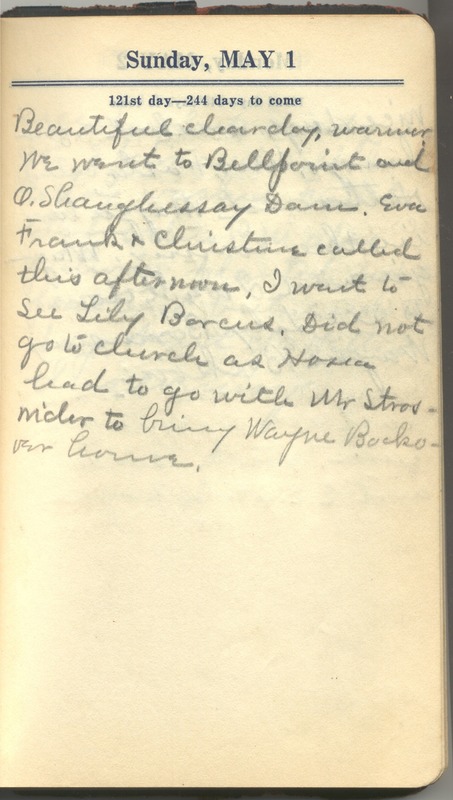 Sunday, MAY 1
121st day—244 days to come
Beautiful clear day, warmer
We went to Bellpoint and
O.Shaughessay Dam. Eva
Frank & Christine called
this afternoon, I went to
see Lily Barcus. Did not
go to church as Hosea
had to go with Mr Stros-
nider to bring Wayne Backo-
ver home.